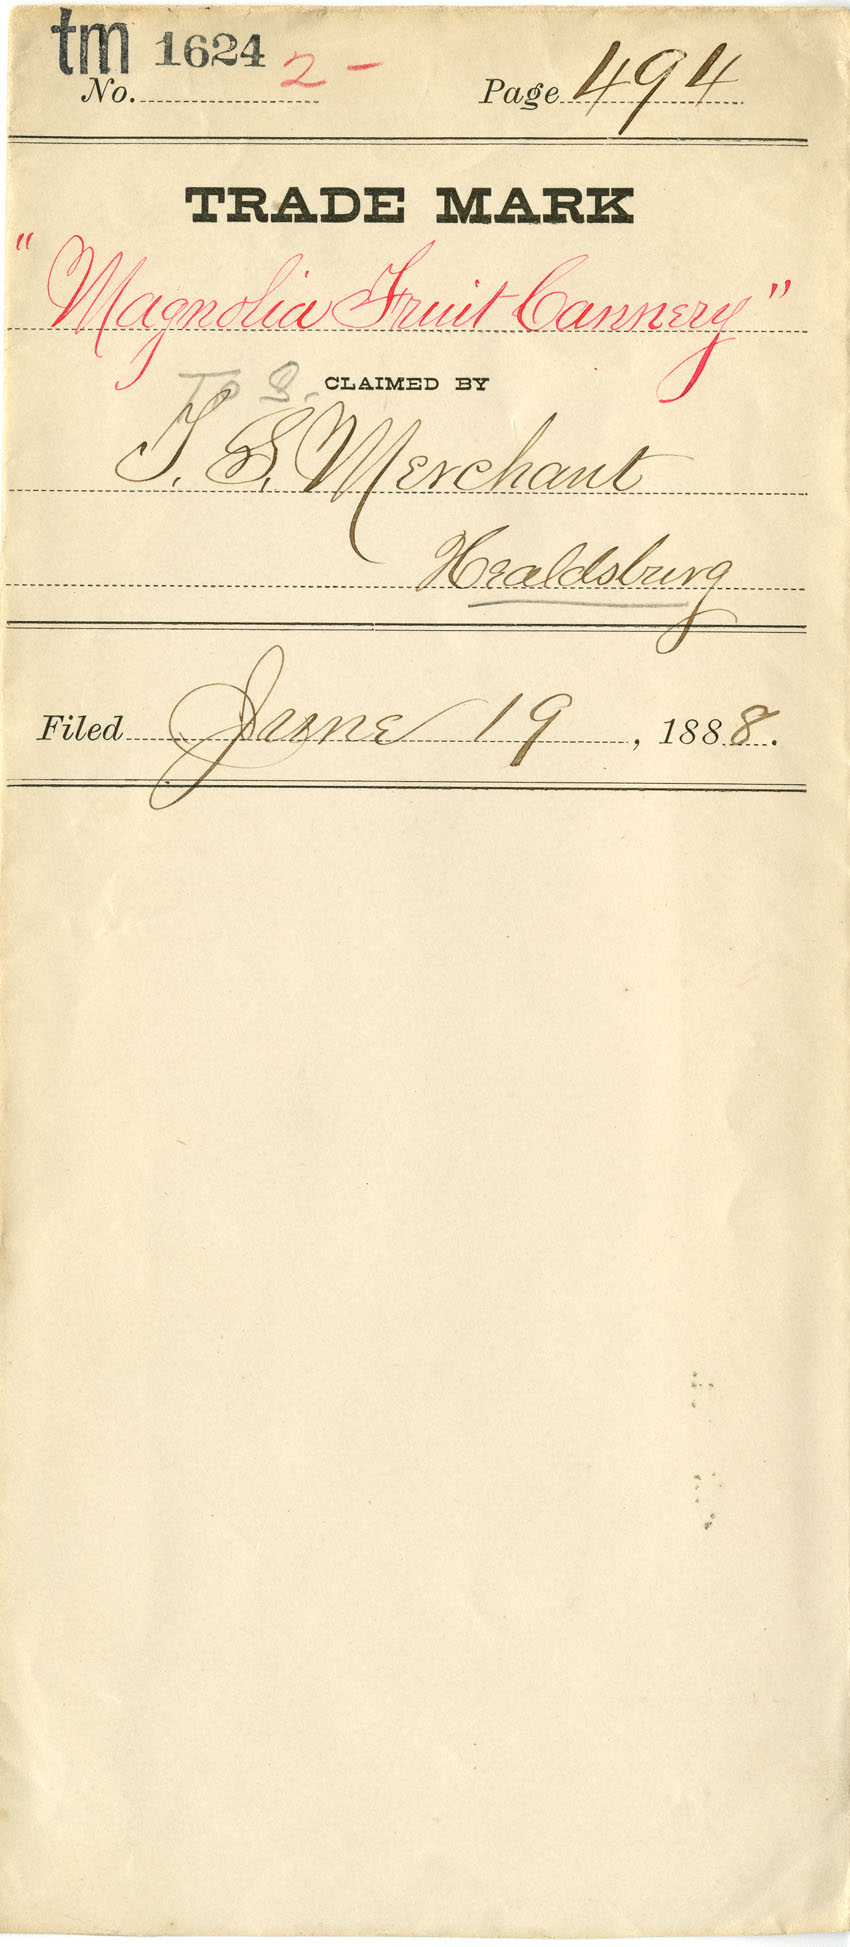 tm 1624 2 -
No. Page 494
TRADE MARK
"Magnolia Fruit Cannery"
CLAIMED BY
T. S. Merchant
Healdsburg
Filed June 19, 1888.